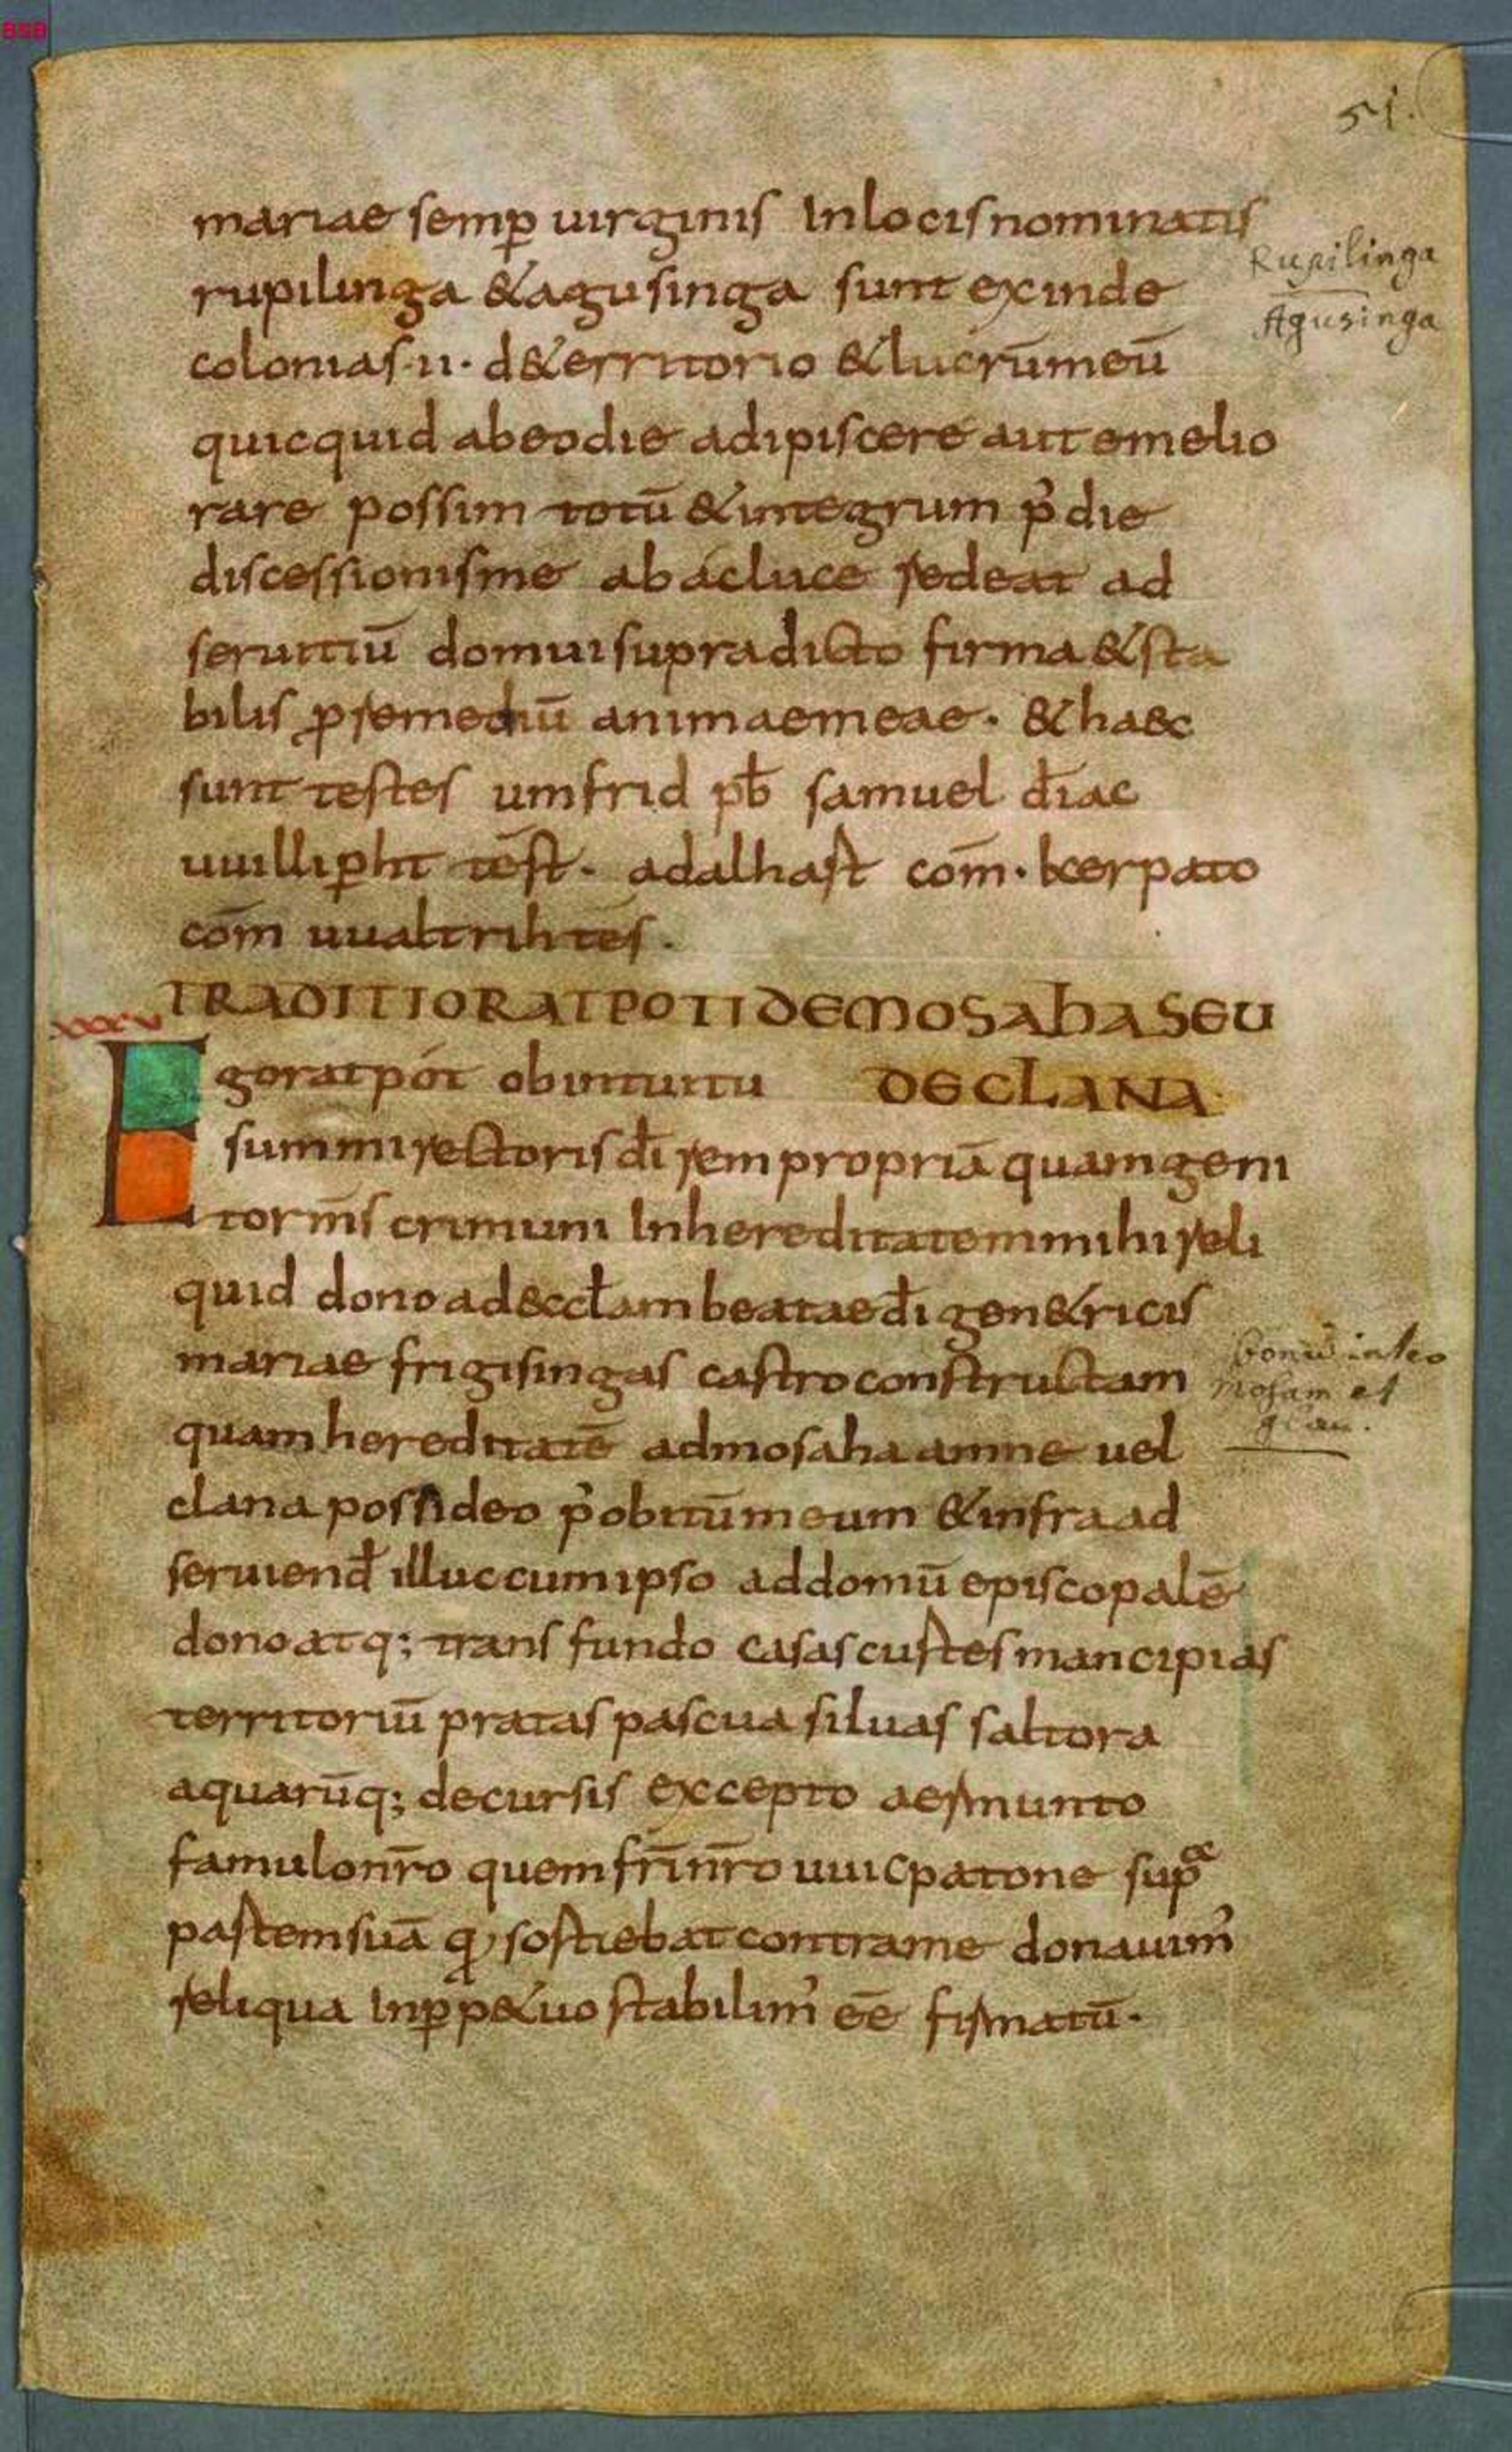 BSB
51.
mariae semꝑ uirginis In locis nominatis
rupilinga & agusinga sunt exinde
Rupilinga
Agusinga
colonias·II· d&erritorio & lucrū meū
quicquid ab eodie adipiscere aut emelio
rare possim totū & integrum p̾ die
discessionis me ab ac luce sedeat ad
seruitiū domui supradicto firma & sta
bilis ꝓ remediū animae meae· & haec
sunt testes umfrid pƀ samuel diac̄
uuillipht tēst· adalhast com̄· kerpato
com̄ uualtrih tēs·
TRADITIO RATPOTI DE MOSAHA SEU
DE CLANA·
xxxv
Ego ratpót ob intuitu
summi rectoris dī rem propriā quam geni
tor m̄s criminum In hereditatem mihi reli
quid dono ad &ccłam beatae dī gen&ricis
mariae frigisingas castro constructam
quam hereditatē ad mosaha amne uel
clana possideo p̾ obitūm eum & infra ad
seruienđ illuc cum ipso ad domū episcopalē
dono atq; trans fundo casas custes mancipias
territoriū pratas pascua siluas saltora
aquarūq; decursis excepto aermunto
famulo nr̄o quem fr̄i nr̄o uuicpatone supᵃ
pastem suā q sostiebat contra me donauim̾
reliqua In ꝑp&uo stabilim̾ ēē firmatū·
mosam et